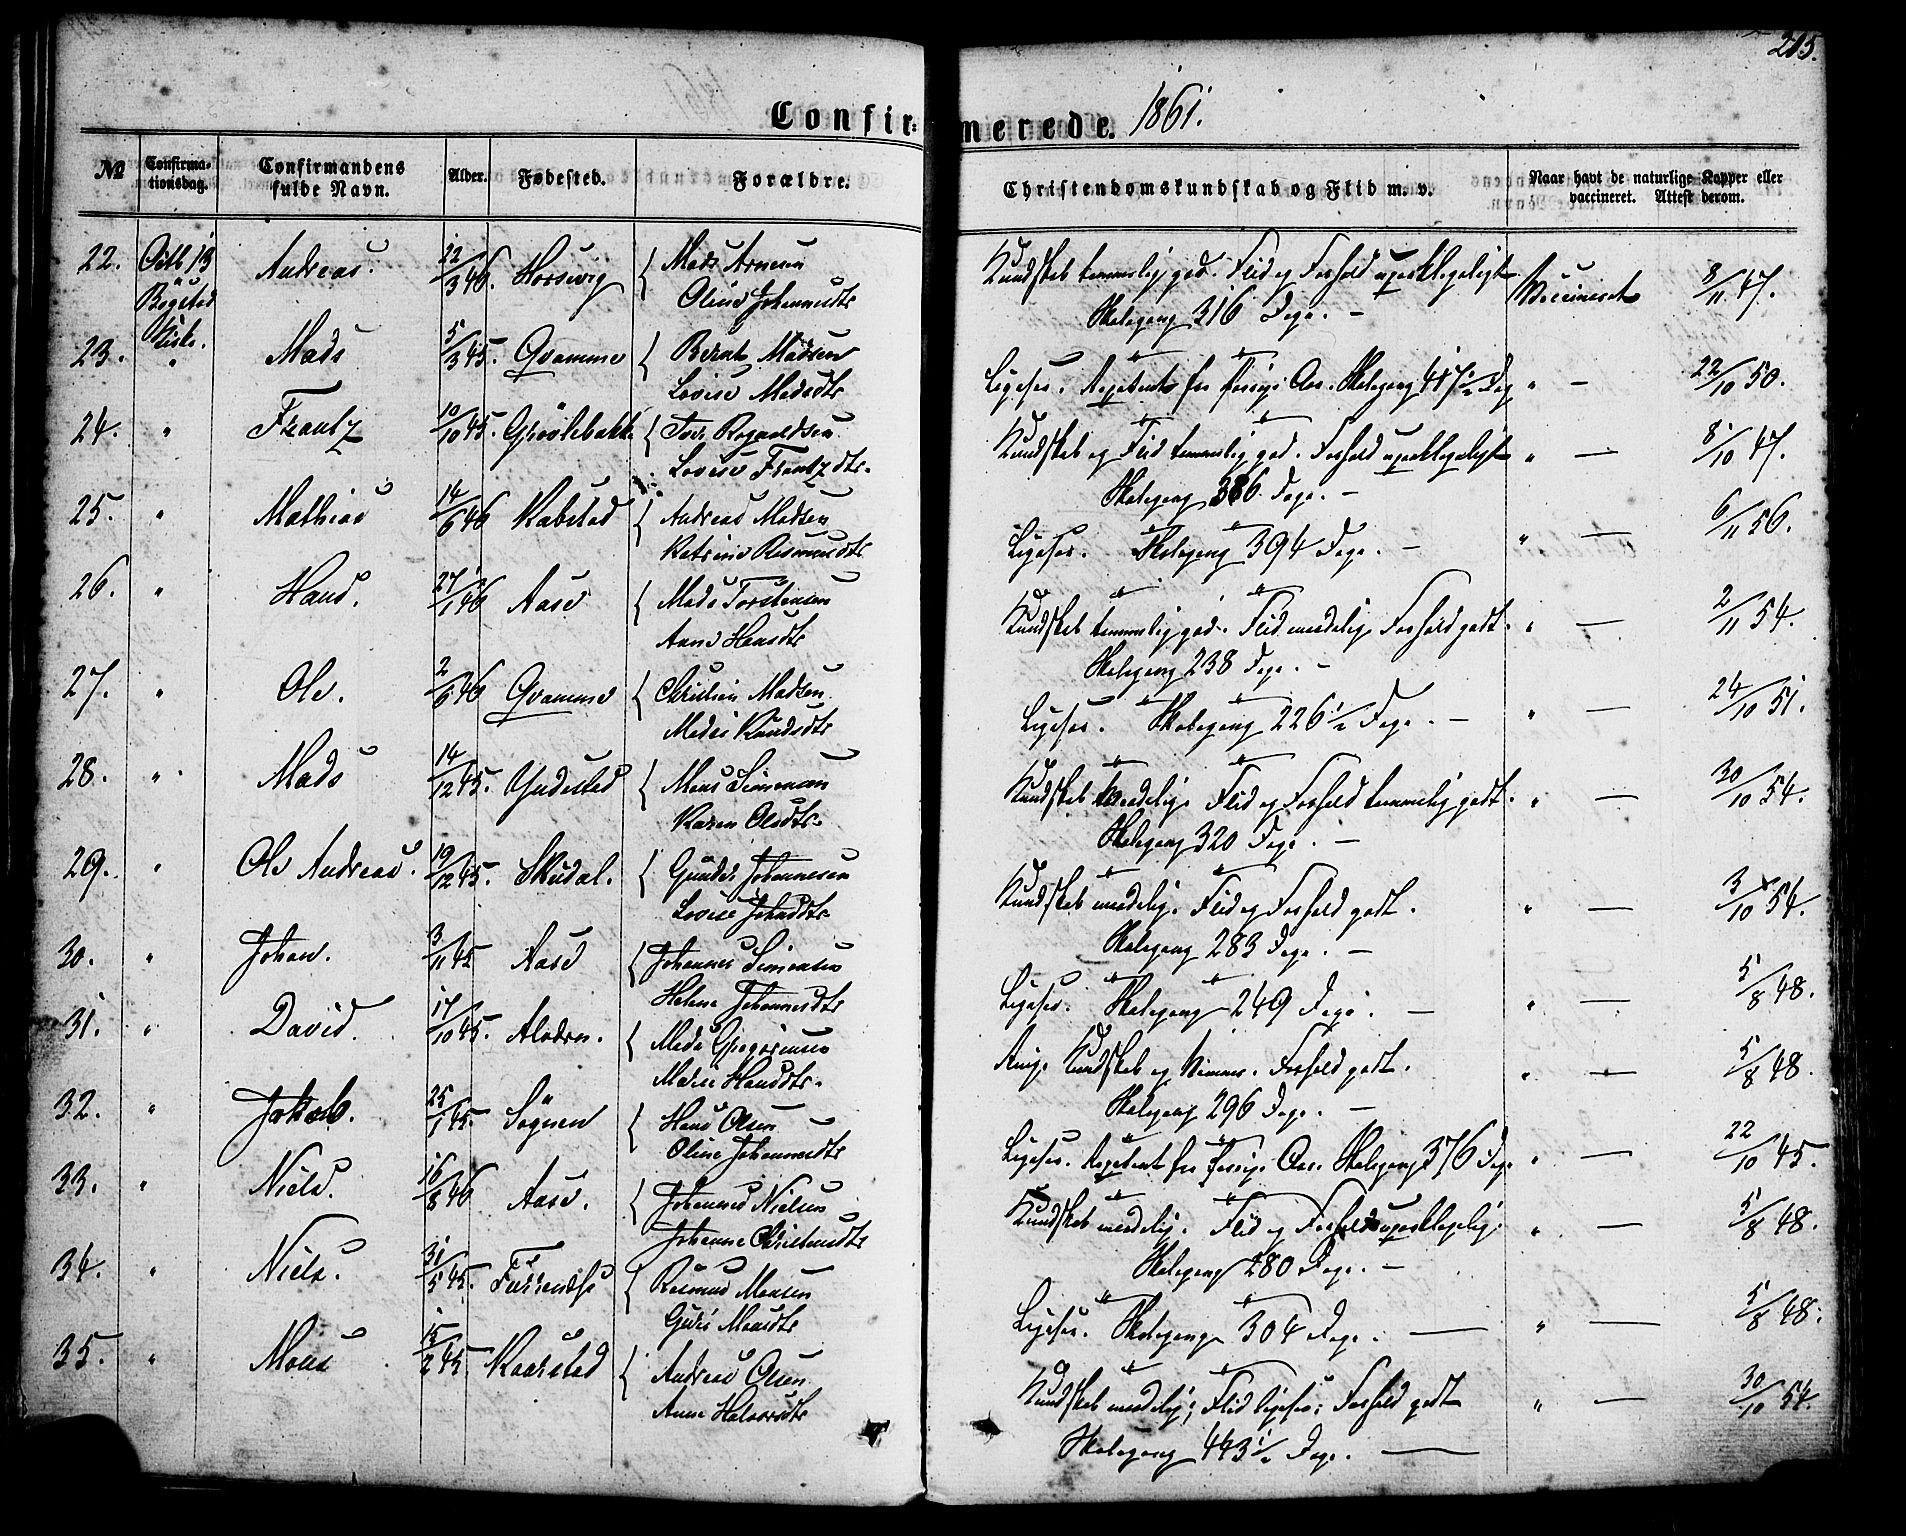 215.
Confirmerede. 1861.
№ Confirmationsdag. Confirmandens fulde Navn. Alder. Fødested. Forældre. Christendomskundskab og Flid m. v. Naar havt de naturlige Kopper eller vaccineret. Attest derom.
22. Octb 13 Andreas. 22/3 46. Horsevig { Mads Arnesen Kundskab temmelig god. Flid og Forhold upaaklageligt Vaccineret 8/11 47.
Bygstad Kirke. Oline Johannesdtr Skolegang 316 Dage. –
23. " Mads 5/3 45. Qvamme { Bernt Madsen Ligesaa. Repetent fra forrige Aar. Skolegang 417½ Dag " – 22/10 50.
Lovise Madsdtr
24. " Frantz 10/10 45. { Tore Kundskab og Flid temmelig god. Forhold upaaklageligt " – 8/10 47.
Lovise Frantzdtr. Skolegang 386 Dage. –
25. " Mathias 14/6 46 { Andreas Madsen Ligesaa. Skolegang 394 Dage. – " – 6/11 56.
Katrine Rasmusdtr
26. " Hans. 27/1 46 Aase { Mads Torstensen Kundskab temmelig god. Flid maadelig. Forhold godt. " – 2/11 54.
Anne Hansdtr Skolegang 238 Dage. –
27. " Ole. 2/6 46 Qvamme { Christian Madsen Ligesaa. Skolegang 226½ Dage. – " – 24/10 51.
Knudsdtr
28. " Mads 14/12 45. Yndestad { Mons Simonsen Kundskab maadelig. Flid og Forhold temmelig godt. " – 30/10 54.
Karen Olsdtr. Skolegang 320 Dage. –
29. " Ole Andreas. 19/12 45. Skudal. { Gunder Johannesen Kundskab maadelig. Flid og Forhold godt. " – 3/10 54.
Lovise Johansdtr Skolegang 283 Dage. –
30. " Johan. 3/11 45 Aase { Johannes Simonsen Ligesaa. Skolegang 249 Dage. – " – 5/8 48.
Helene Johannesdtr
31. " David. 17/10 45. { Mads Gregoriusen Ringe Kundskab og Nemme. Forhold godt. " – 5/8 48.
Hansdtr. Skolegang 296 Dage. –
32. " Jakob. 25/1 45. Sögnen { Hans Olsen Ligesaa. Repetent fra forrige Aar. Skolegang 376 Dage " – 22/10 45.
Oline Johannesdtr
33. " Niels. 16/8 46 Aase. { Johannes Nielsen Kundskab maadelig. Flid og Forhold upaaklagelig. " – 5/8 48.
Johanne Christensdtr Skolegang 280 Dage. –
34. " Niels. 31/5 45. { Rasmus Monsen Ligesaa. Skolegang 304 Dage. – " – 5/8 48.
Monsdtr
35. " Mons 15/2 45. Kaarstad { Andreas Olsen Kundskab maadelig; Flid ligesaa; Forhold godt " – 30/10 54.
Anne Skolegang 443½ Dage. –